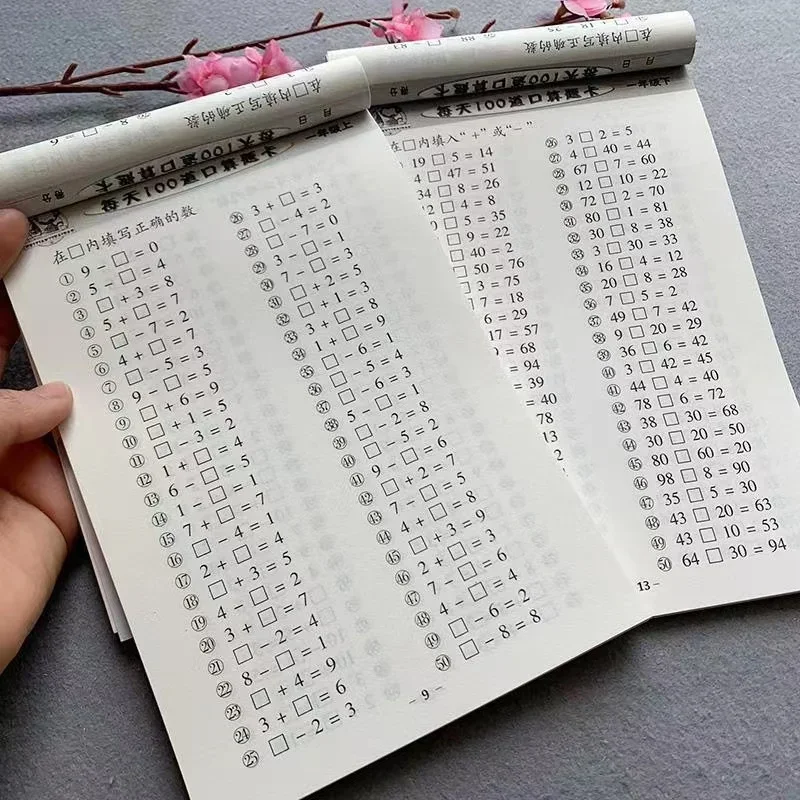 每天100道口算题卡
一年级上
月 日
得分
在□内填写正确的数
① 9 − □ = 0
② 5 − □ = 4
③ □ + 3 = 8
④ 5 + □ = 7
⑤ □ − 7 = 2
⑥ 4 + □ = 7
⑦ □ − 5 = 3
⑧ 9 − □ = 5
⑨ □ + 6 = 9
⑩ □ + 1 = 5
⑪ □ − 3 = 2
⑫ 1 + □ = 4
⑬ 6 − □ = 5
⑭ 1 − □ = 1
⑮ 7 + □ = 7
⑯ □ − 4 = 1
⑰ 2 + □ = 4
⑱ □ + 3 = 5
⑲ 4 − □ = 2
⑳ 3 + □ = 7
㉑ □ − 2 = 4
㉒ 8 − □ = 1
㉓ □ + 4 = 9
㉔ 3 + □ = 6
㉕ □ − 2 = 3
㉖ 3 + □ = 3
㉗ □ − 4 = 2
㉘ □ − 7 = 0
㉙ 3 − □ = 1
㉚ 7 − □ = 3
㉛ □ + 2 = 5
㉜ □ + 1 = 3
㉝ 3 + □ = 8
㉞ 1 + □ = 9
㉟ □ − 6 = 1
㊱ □ − 5 = 4
㊲ □ − 6 = 3
㊳ 5 − □ = 1
㊴ □ − 2 = 8
㊵ □ − 5 = 2
㊶ 9 − □ = 6
㊷ □ + 2 = 7
㊸ 7 − □ = 5
㊹ 4 + □ = 8
㊺ □ + 3 = 9
㊻ 2 + □ = 3
㊼ 7 − □ = 6
㊽ 4 − □ = 4
㊾ □ − 6 = 2
㊿ □ − 8 = 8
– 9 –
每天100道口算题卡
一年级下
月 日
在□内填入“+”或“−”
19 □ 5 = 14
4 □ 47 = 51
34 □ 8 = 26
□ 4 = 8
□ 5 = 35
□ 9 = 22
□ 40 = 2
□ 50 = 76
□ 3 = 75
□ 7 = 18
□ 6 = 29
□ 17 = 57
= 68
= 94
= 39
= 40
78
13
㉖ 3 □ 2 = 5
㉗ 4 □ 40 = 44
㉘ 67 □ 7 = 60
㉙ 12 □ 10 = 22
㉚ 72 □ 2 = 70
㉛ 80 □ 1 = 81
㉜ 30 □ 8 = 38
㉝ 3 □ 30 = 33
㉞ 16 □ 4 = 12
㉟ 20 □ 8 = 28
㊱ 7 □ 5 = 2
㊲ 49 □ 7 = 42
㊳ 9 □ 20 = 29
㊴ 36 □ 6 = 42
㊵ 3 □ 42 = 45
㊶ 44 □ 4 = 40
㊷ 78 □ 6 = 72
㊸ 38 □ 30 = 68
㊹ 30 □ 20 = 50
㊺ 80 □ 60 = 20
㊻ 98 □ 8 = 90
㊼ 35 □ 5 = 30
㊽ 43 □ 20 = 63
㊾ 43 □ 10 = 53
㊿ 64 □ 30 = 94
13 –